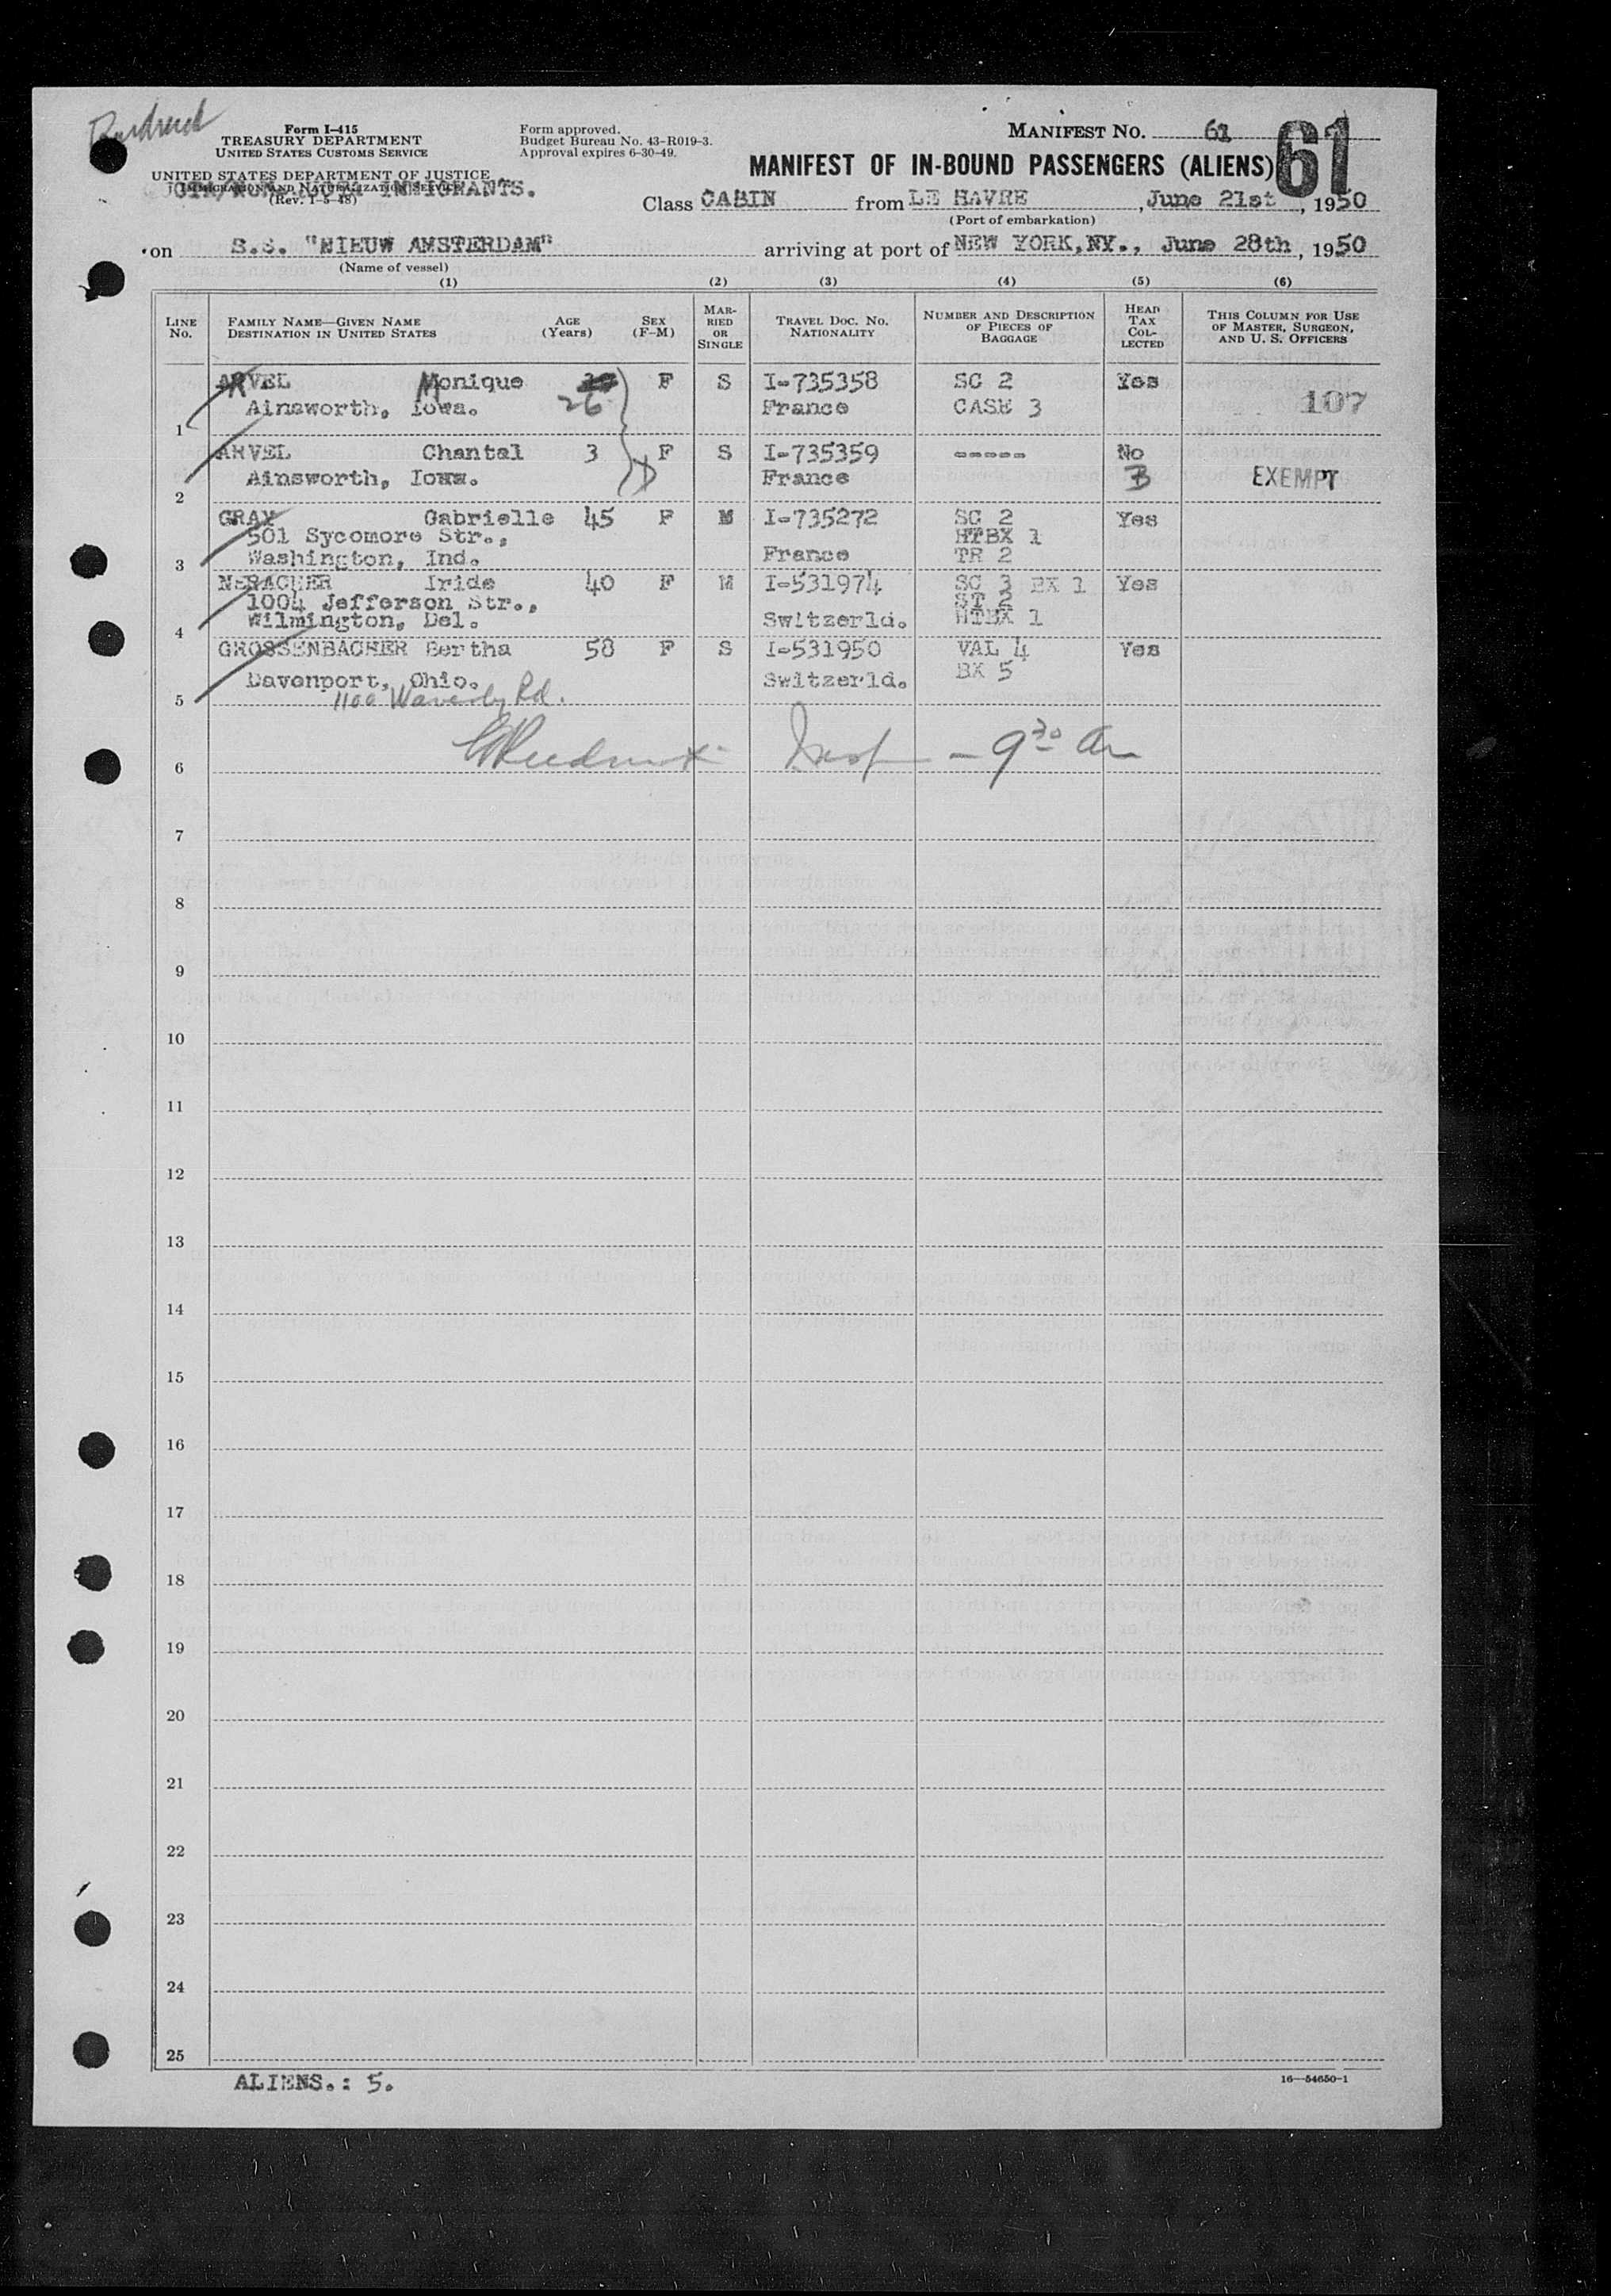 Form I-415
TREASURY DEPARTMENT
UNITED STATES CUSTOMS SERVICE
UNITED STATES DEPARTMENT OF JUSTICE
IMMIGRATION AND NATURALIZATION SERVICE
(Rev. 1-5-48)
IMMIGRANTS.
Form approved.
Budget Bureau No. 43-R019-3.
Approval expires 6-30-49.
MANIFEST NO. 61
61
MANIFEST OF IN-BOUND PASSENGERS (ALIENS)
Class CABIN from LE HAVRE, June 21st, 1950
(Port of embarkation)
on S.S. "NIEUW AMSTERDAM" arriving at port of NEW YORK,NY., June 28th, 1950
(Name of vessel)
(1) (2) (3) (4) (5) (6)
LINE No. FAMILY NAME—GIVEN NAME DESTINATION IN UNITED STATES AGE (Years) SEX (F-M) MARRIED OR SINGLE TRAVEL DOC. NO. NATIONALITY NUMBER AND DESCRIPTION OF PIECES OF BAGGAGE HEAD TAX COLLECTED THIS COLUMN FOR USE OF MASTER, SURGEON, AND U. S. OFFICERS
ARVEL Monique F S I-735358 SC 2 Yes
1 Ainsworth, Iowa. 26 France CASE 3 107
ARVEL Chantal 3 F S I-735359 ----- No
2 Ainsworth, Iowa. France B EXEMPT
GRAY Gabrielle 45 F M I-735272 SC 2 Yes
501 Sycomore Str., HTBX 1
3 Washington, Ind. France TR 2
NERACHER Iride 40 F M I-531974 SC 3 BX 1 Yes
1004 Jefferson Str., ST 2
4 Wilmington, Del. Switzerld. HTBX 1
GROSSENBACHER Bertha 58 F S I-531950 VAL 4 Yes
Davenport, Ohio. Switzerld. BX 5
5 1100 Waverly Rd.
6 Insp — 9 30 am
7
8
9
10
11
12
13
14
15
16
17
18
19
20
21
22
23
24
25
ALIENS.: 5.
16—54650-1